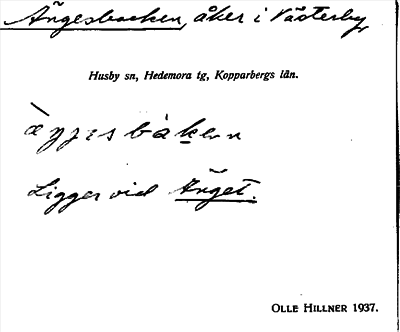 Ängesbacken, åker i Västerby
Husby sn, Hedemora tg, Kopparbergs län.
Ligger vid Änget.
OLLE HILLNER 1937.